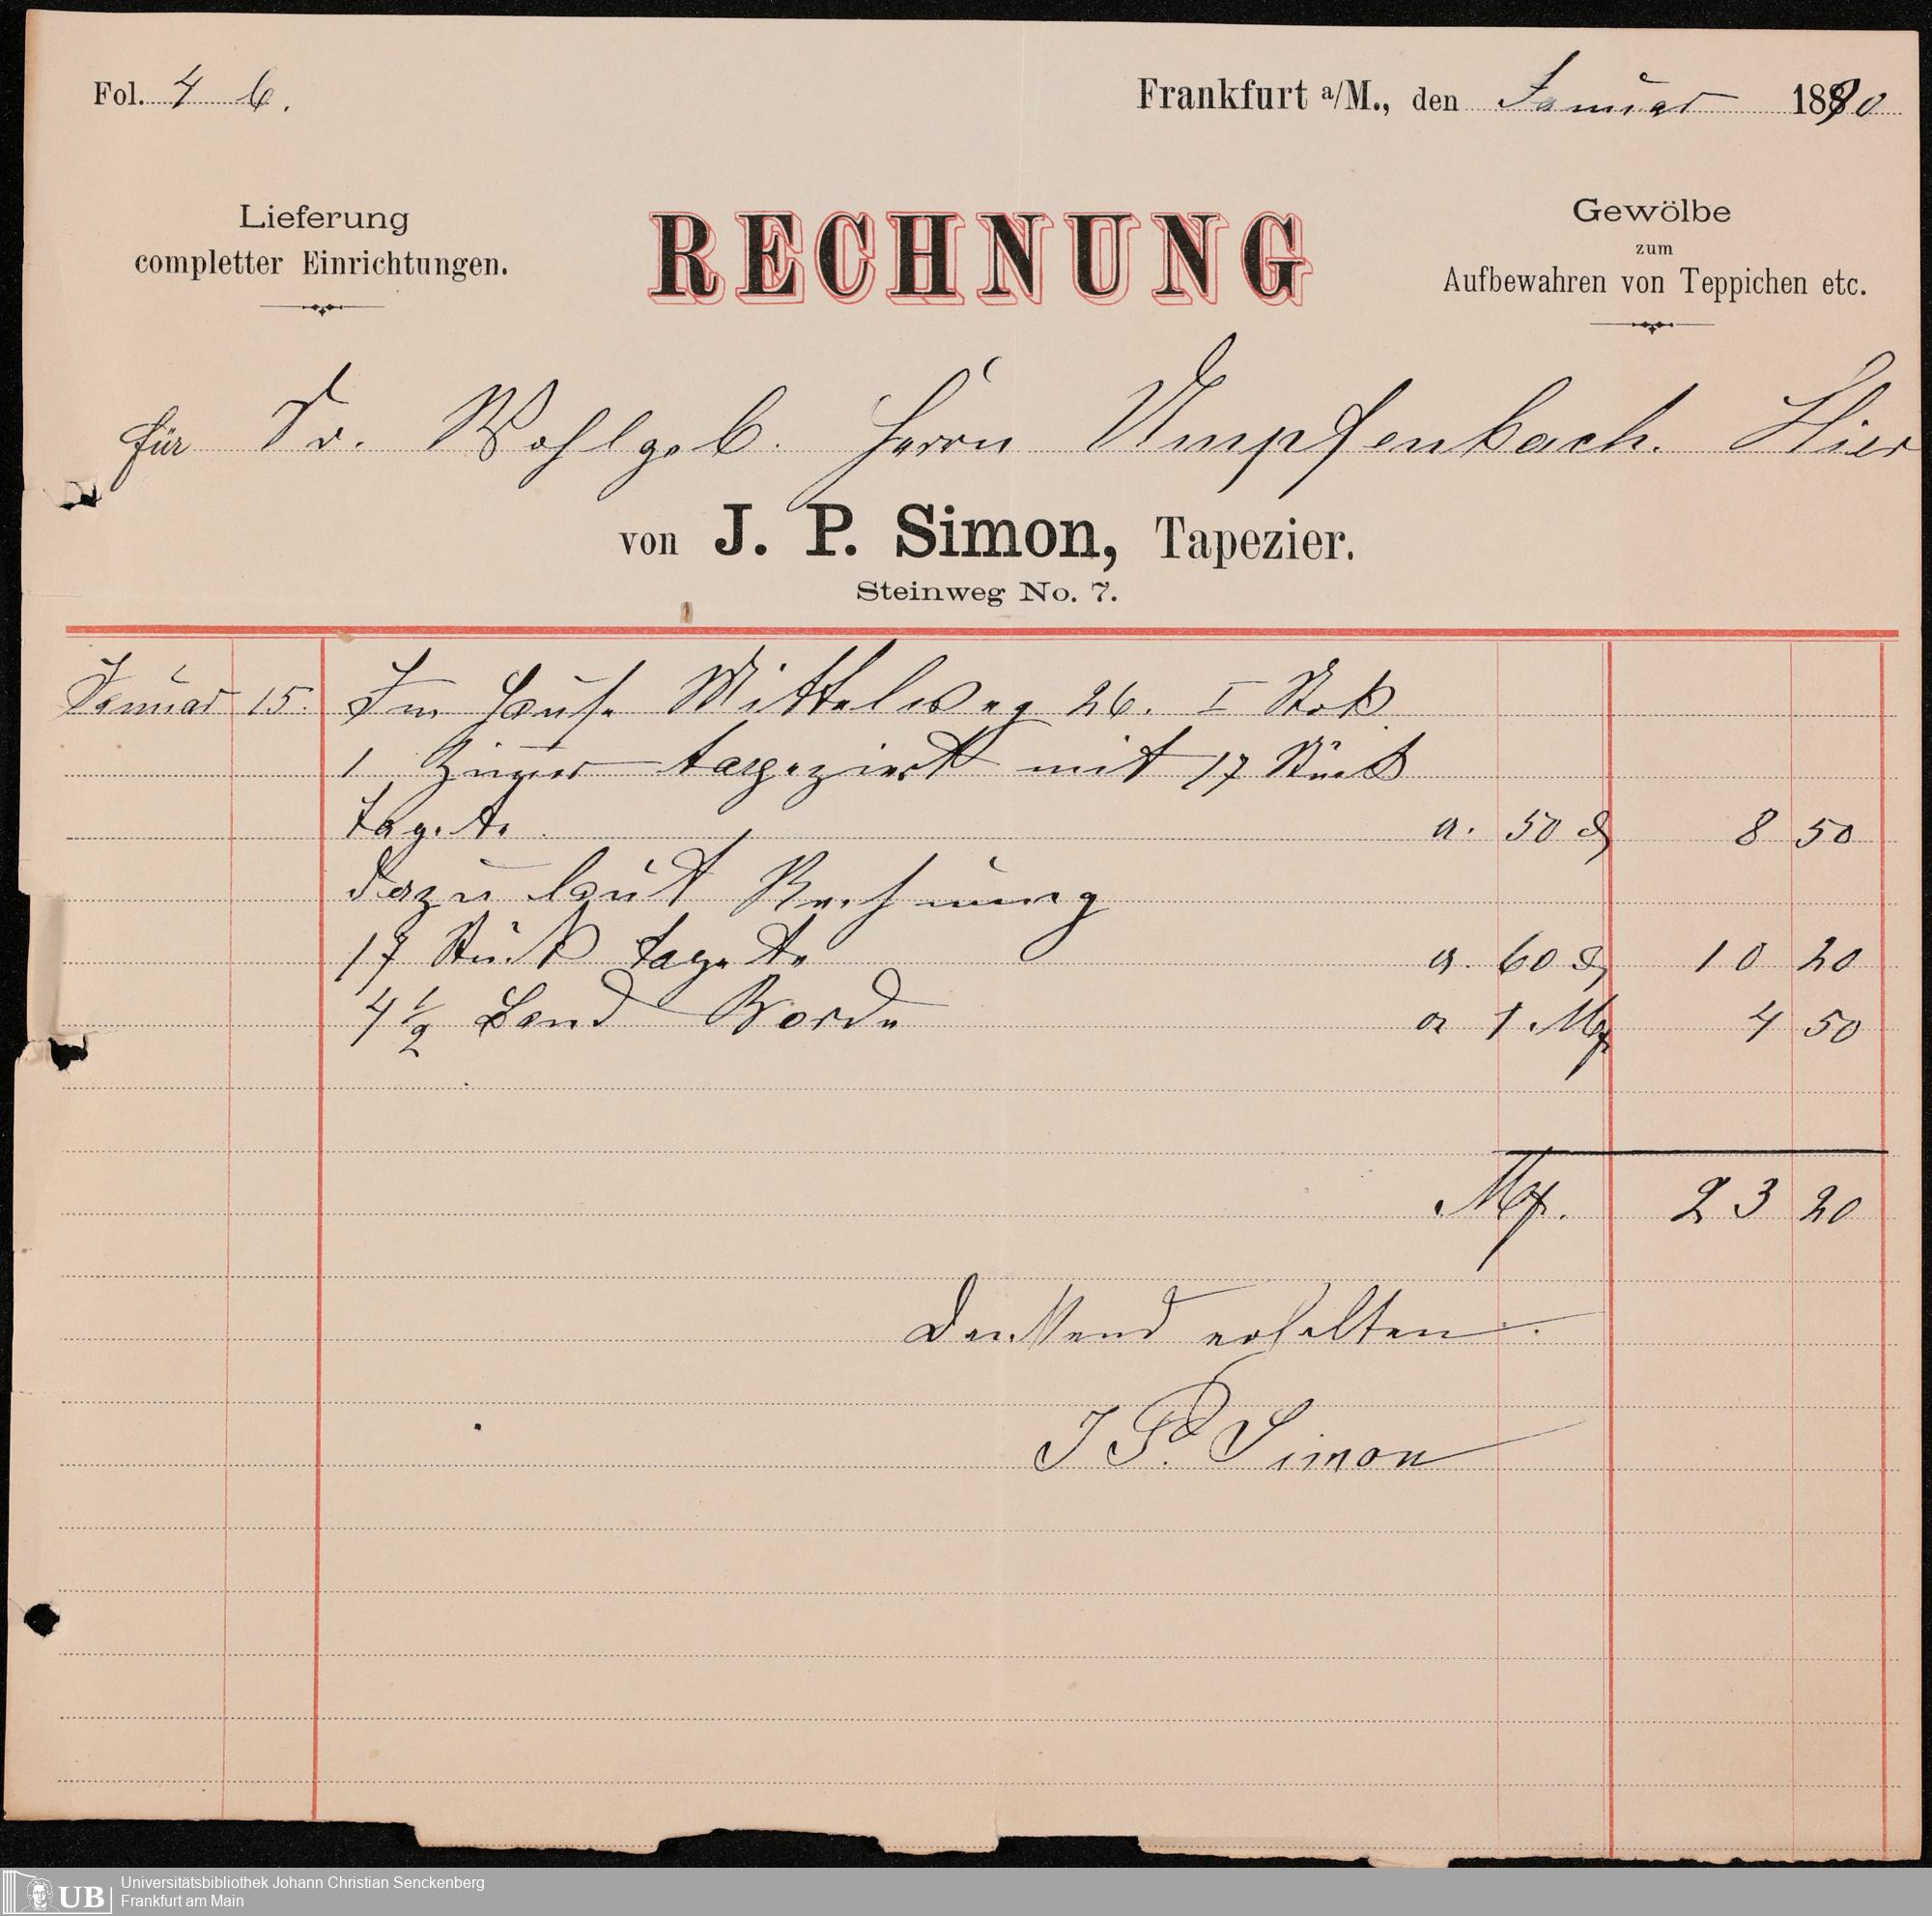 Fol. 46.
Frankfurt a/M., den Januar 1890
Lieferung
completter Einrichtungen.
RECHNUNG
Gewölbe
zum
Aufbewahren von Teppichen etc.
für Sr. Wohlgeb. Herrn Umpfenbach. Hier
von J. P. Simon, Tapezier.
Steinweg No. 7.
Januar 15. Im Hause Mittelweg 26. I Stok
1 Zimer tapeziert mit 17 Stück
Tapete. a. 50 ₰ 8 50
dazu laut Rechnung
17 Stück Tapete a. 60 ₰ 10 20
4 1/2 Band Borde a 1 Mk 4 50
Mk. 23 20
Dankend erhalten.
J P. Simon
UB
Universitätsbibliothek Johann Christian Senckenberg
Frankfurt am Main